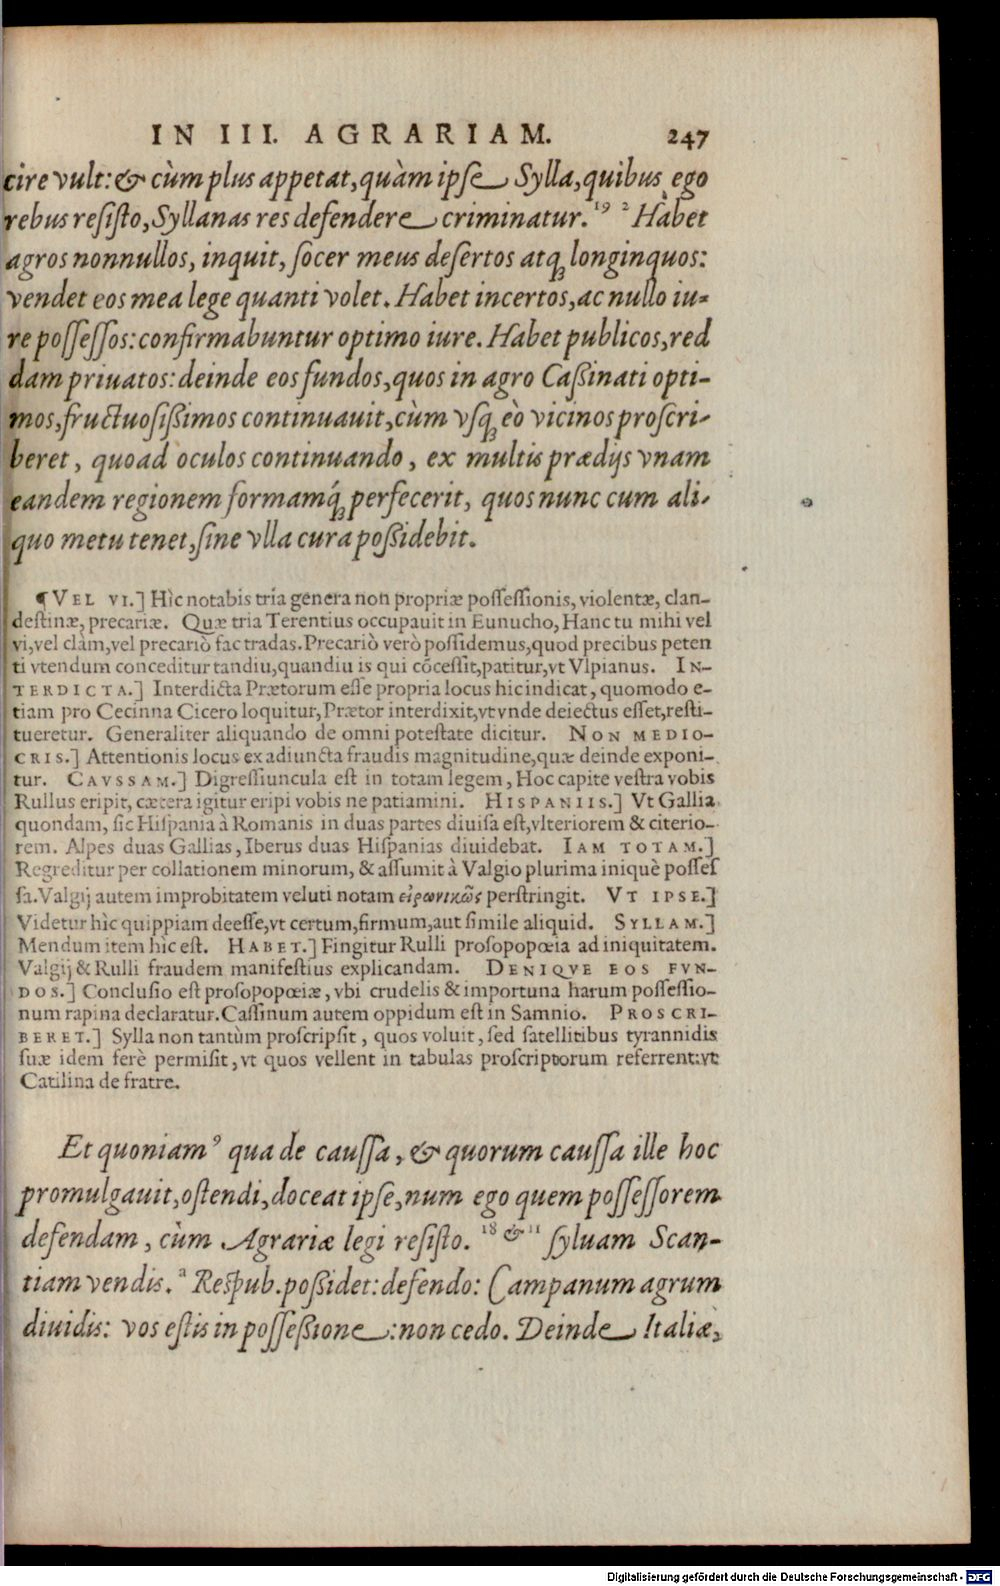 IN III. AGRARIAM. 247
cire vult: & cùm plus appetat, quàm ipse Sylla, quibus ego
rebus resisto, Syllanas res defendere criminatur. 19 2 Habet
agros nonnullos, inquit, socer meus desertos atq; longinquos:
vendet eos mea lege quanti volet. Habet incertos, ac nullo iu-
re possessos: confirmabuntur optimo iure. Habet publicos, red
dam priuatos: deinde eos fundos, quos in agro Caßinati opti-
mos, fructuosißimos continuauit, cùm vsq; eò vicinos proscri-
beret, quoad oculos continuando, ex multis prædijs vnam
eandem regionem formamq́; perfecerit, quos nunc cum ali-
quo metu tenet, sine vlla cura poßidebit.
¶ VEL VI.] Hìc notabis tria genera non propriæ possessionis, violentæ, clan-
destinæ, precariæ. Quæ tria Terentius occupauit in Eunucho, Hanc tu mihi vel
vi, vel clàm, vel precariò fac tradas. Precariò verò possidemus, quod precibus peten
ti vtendum conceditur tandiu, quandiu is qui cõcessit, patitur, vt Vlpianus. IN-
TERDICTA.] Interdicta Prætorum esse propria locus hic indicat, quomodo e-
tiam pro Cecinna Cicero loquitur, Prætor interdixit, vt vnde deiectus esset, resti-
tueretur. Generaliter aliquando de omni potestate dicitur. NON MEDIO-
CRIS.] Attentionis locus ex adiuncta fraudis magnitudine, quæ deinde exponi-
tur. CAVSSAM.] Digressiuncula est in totam legem, Hoc capite vestra vobis
Rullus eripit, cætera igitur eripi vobis ne patiamini. HISPANIIS.] Vt Gallia
quondam, sic Hispania à Romanis in duas partes diuisa est, vlteriorem & citerio-
rem. Alpes duas Gallias, Iberus duas Hispanias diuidebat. IAM TOTAM.]
Regreditur per collationem minorum, & assumit à Valgio plurima iniquè posses
sa. Valgij autem improbitatem veluti notam εἰρωνικῶς perstringit. VT IPSE.]
Videtur hìc quippiam deesse, vt certum, firmum, aut simile aliquid. SYLLAM.]
Mendum item hìc est. HABET.] Fingitur Rulli prosopopœia ad iniquitatem.
Valgij & Rulli fraudem manifestius explicandam. DENIQVE EOS FVN-
DOS.] Conclusio est prosopopœiæ, vbi crudelis & importuna harum possessio-
num rapina declaratur. Cassinum autem oppidum est in Samnio. PROSCRI-
BERET.] Sylla non tantùm proscripsit, quos voluit, sed satellitibus tyrannidis
suæ idem ferè permisit, vt quos vellent in tabulas proscriptorum referrent: vt
Catilina de fratre.
Et quoniam⁹ qua de caussa, & quorum caussa ille hoc
promulgauit, ostendi, doceat ipse, num ego quem possessorem
defendam, cùm Agrariæ legi resisto. 18 & 11 syluam Scan-
tiam vendis. ² Respub. poßidet: defendo: Campanum agrum
diuidis: vos estis in possessione: non cedo. Deinde Italiæ,
Digitalisierung gefördert durch die Deutsche Forschungsgemeinschaft - DFG